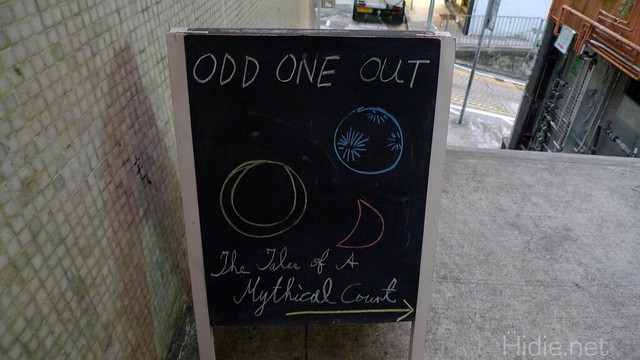 ODD ONE OUT
The Tales of A
Mythical Court
Hidie.net